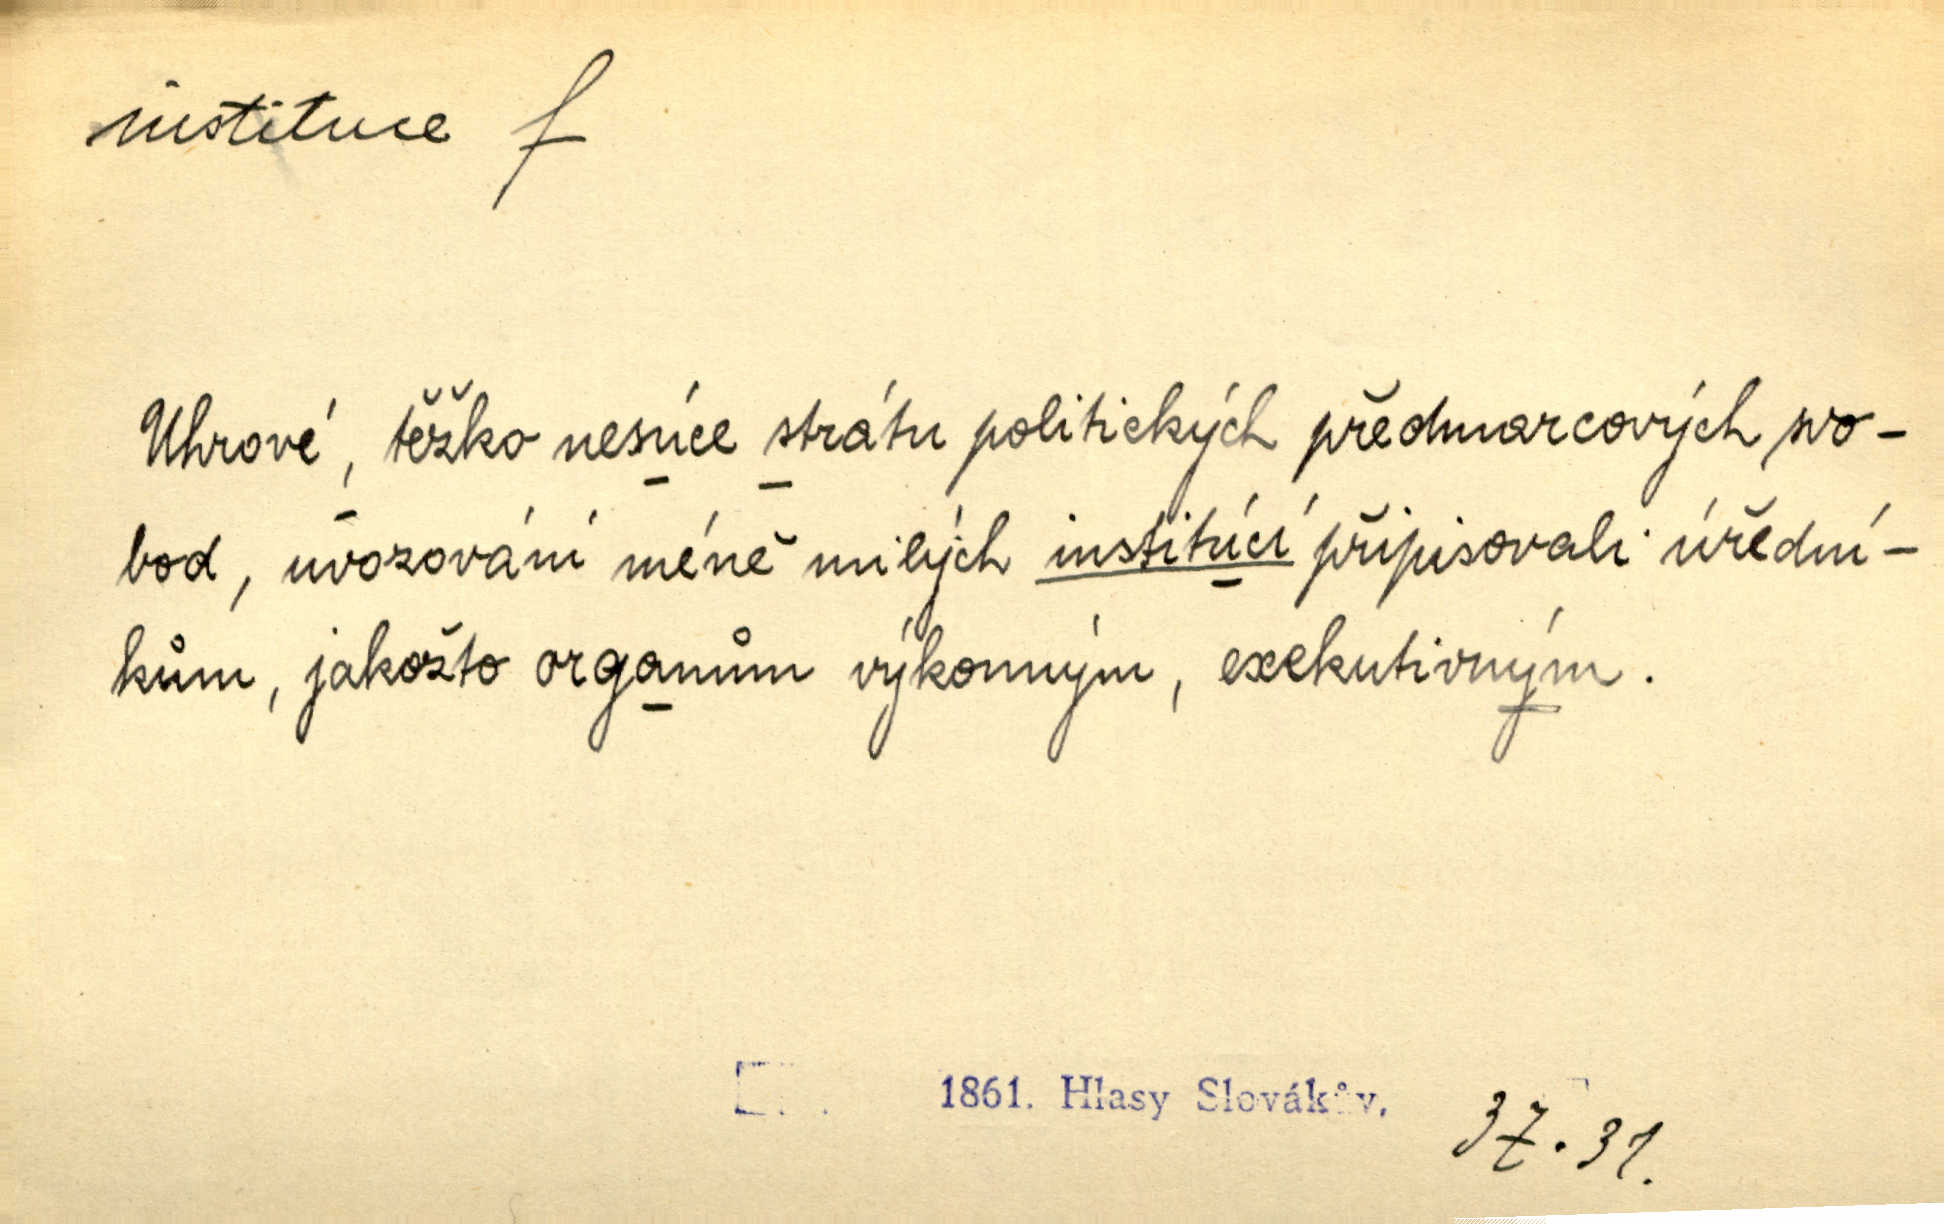 instituce f
Uhrové, těžko nesúce strátu politických předmarcových svo-
bod, uvozování méně milých institúcí připisovali úřední-
kům, jakožto organům výkonným, exekutivným.
1861. Hlasy Slovákův.
37.31.